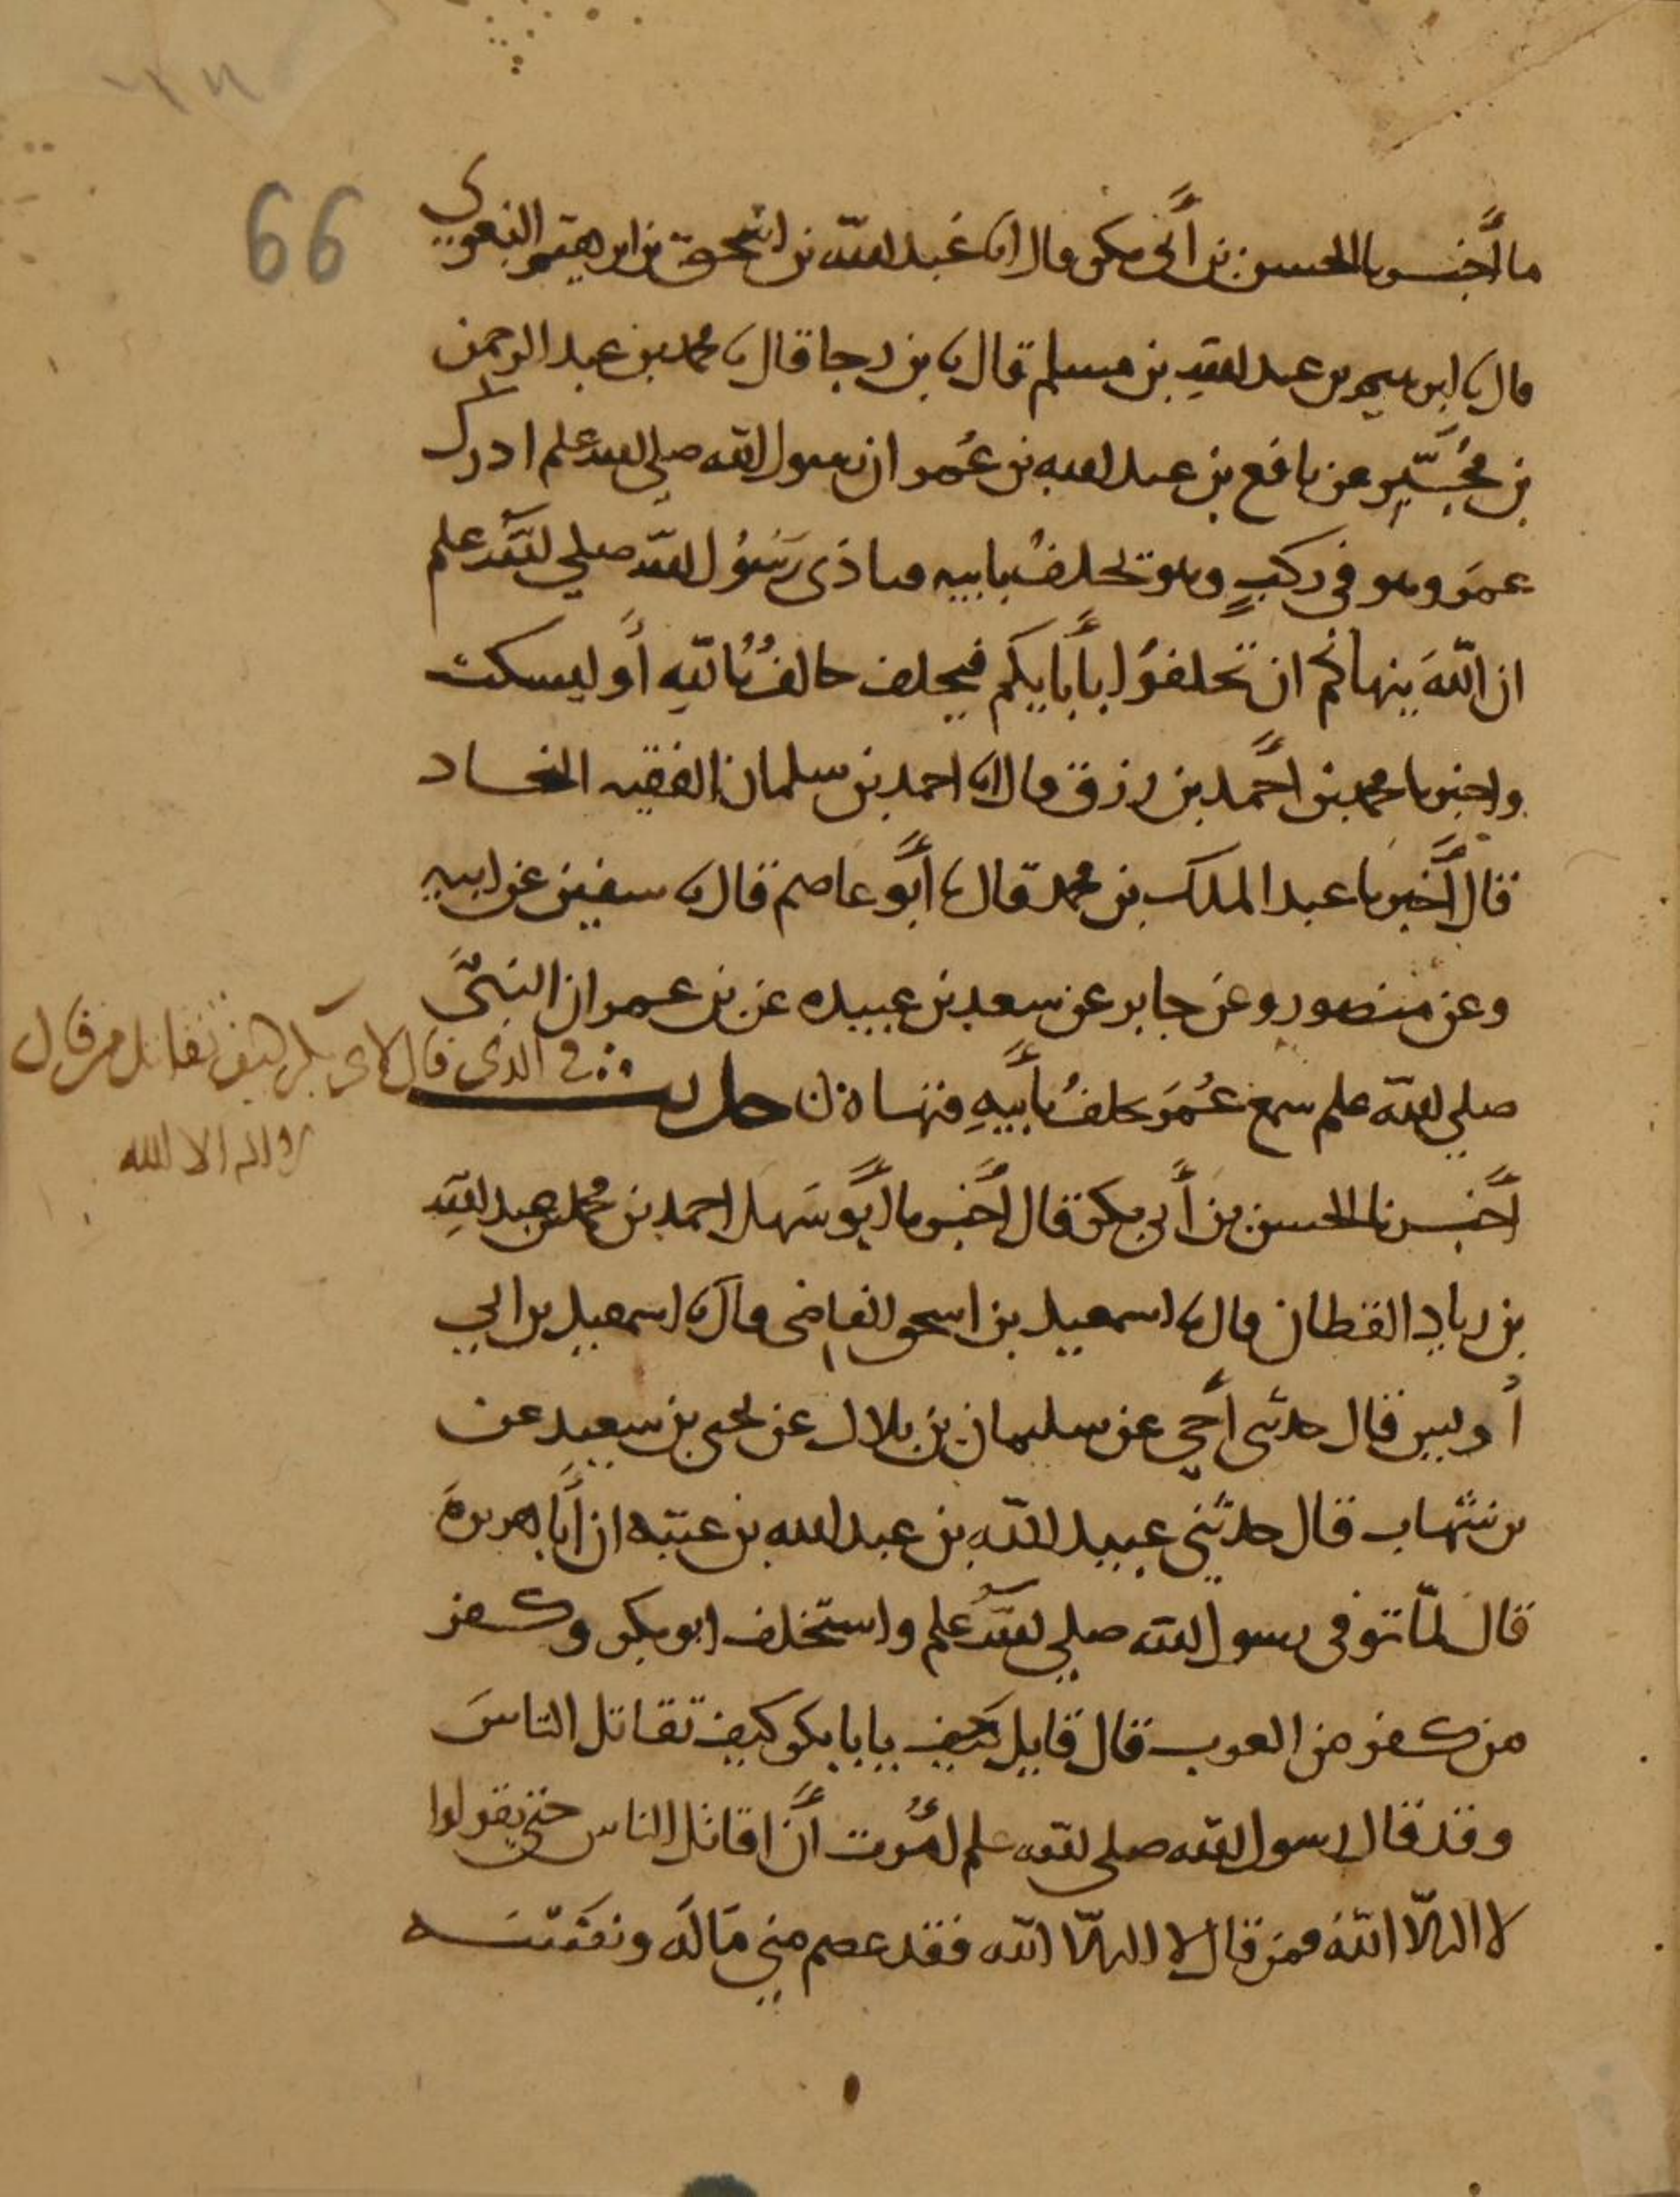 66
ما أخبرنا الحسن بن أبي بكر قال انا عبد الله بن اسحق بن ابرهيم البغوي
قال نا ابرهيم بن عبد الله بن مسلم قال نا بن رجا قال نا محمد بن عبد الرحمن
بن مجبر عن نافع بن عبد الله بن عمر ان رسول الله صلى الله علم ادرك
عمر وهو في ركب وهو يحلف بابيه فناذى رسول الله صلي الله علم
ان الله ينهاكم ان تحلفوا بأبايكم فيحلف حالف بالله أو ليسكت
واخبرنا محمد بن احمد بن رزق قال انا احمد بن سلمان الفقيه النجاد
قال أخبرنا عبد الملك بن محمد قال نا أبو عاصم قال نا سفين عن ابيه
وعن منصور وعن جابر عن سعد بن عبيده عن بن عمر ان النبي
صلي الله علم سمع عمر يحلف بأبيه فنهاه حديث
في الذي قال لابي بكر كيف تقاتل من قال
لا اله الا الله
أخبرنا الحسن بن أبي بكر قال أخبرنا أبو سهل احمد بن محمد بن عبد الله
بن زياد القطان قال نا اسمعيل بن اسحق القاضى قال نا اسمعيل بن ابي
أويس قال حدثني أخي عن سليمان بن بلال عن يحيى بن سعيد عن
بن شهاب قال حدثني عبيد الله بن عبد الله بن عتبه ان أبا هريرة
قال لما توفى رسول الله صلي الله علم واستخلف ابو بكر وكفر
من كفر من العرب قال قايل كيف يابا بكر كيف تقاتل الناس
وقد قال رسول الله صلى الله علم أمرت أن اقاتل الناس حتى يقولوا
لا اله الا الله فمن قال لا اله الا الله فقد عصم مني ماله ونفسه